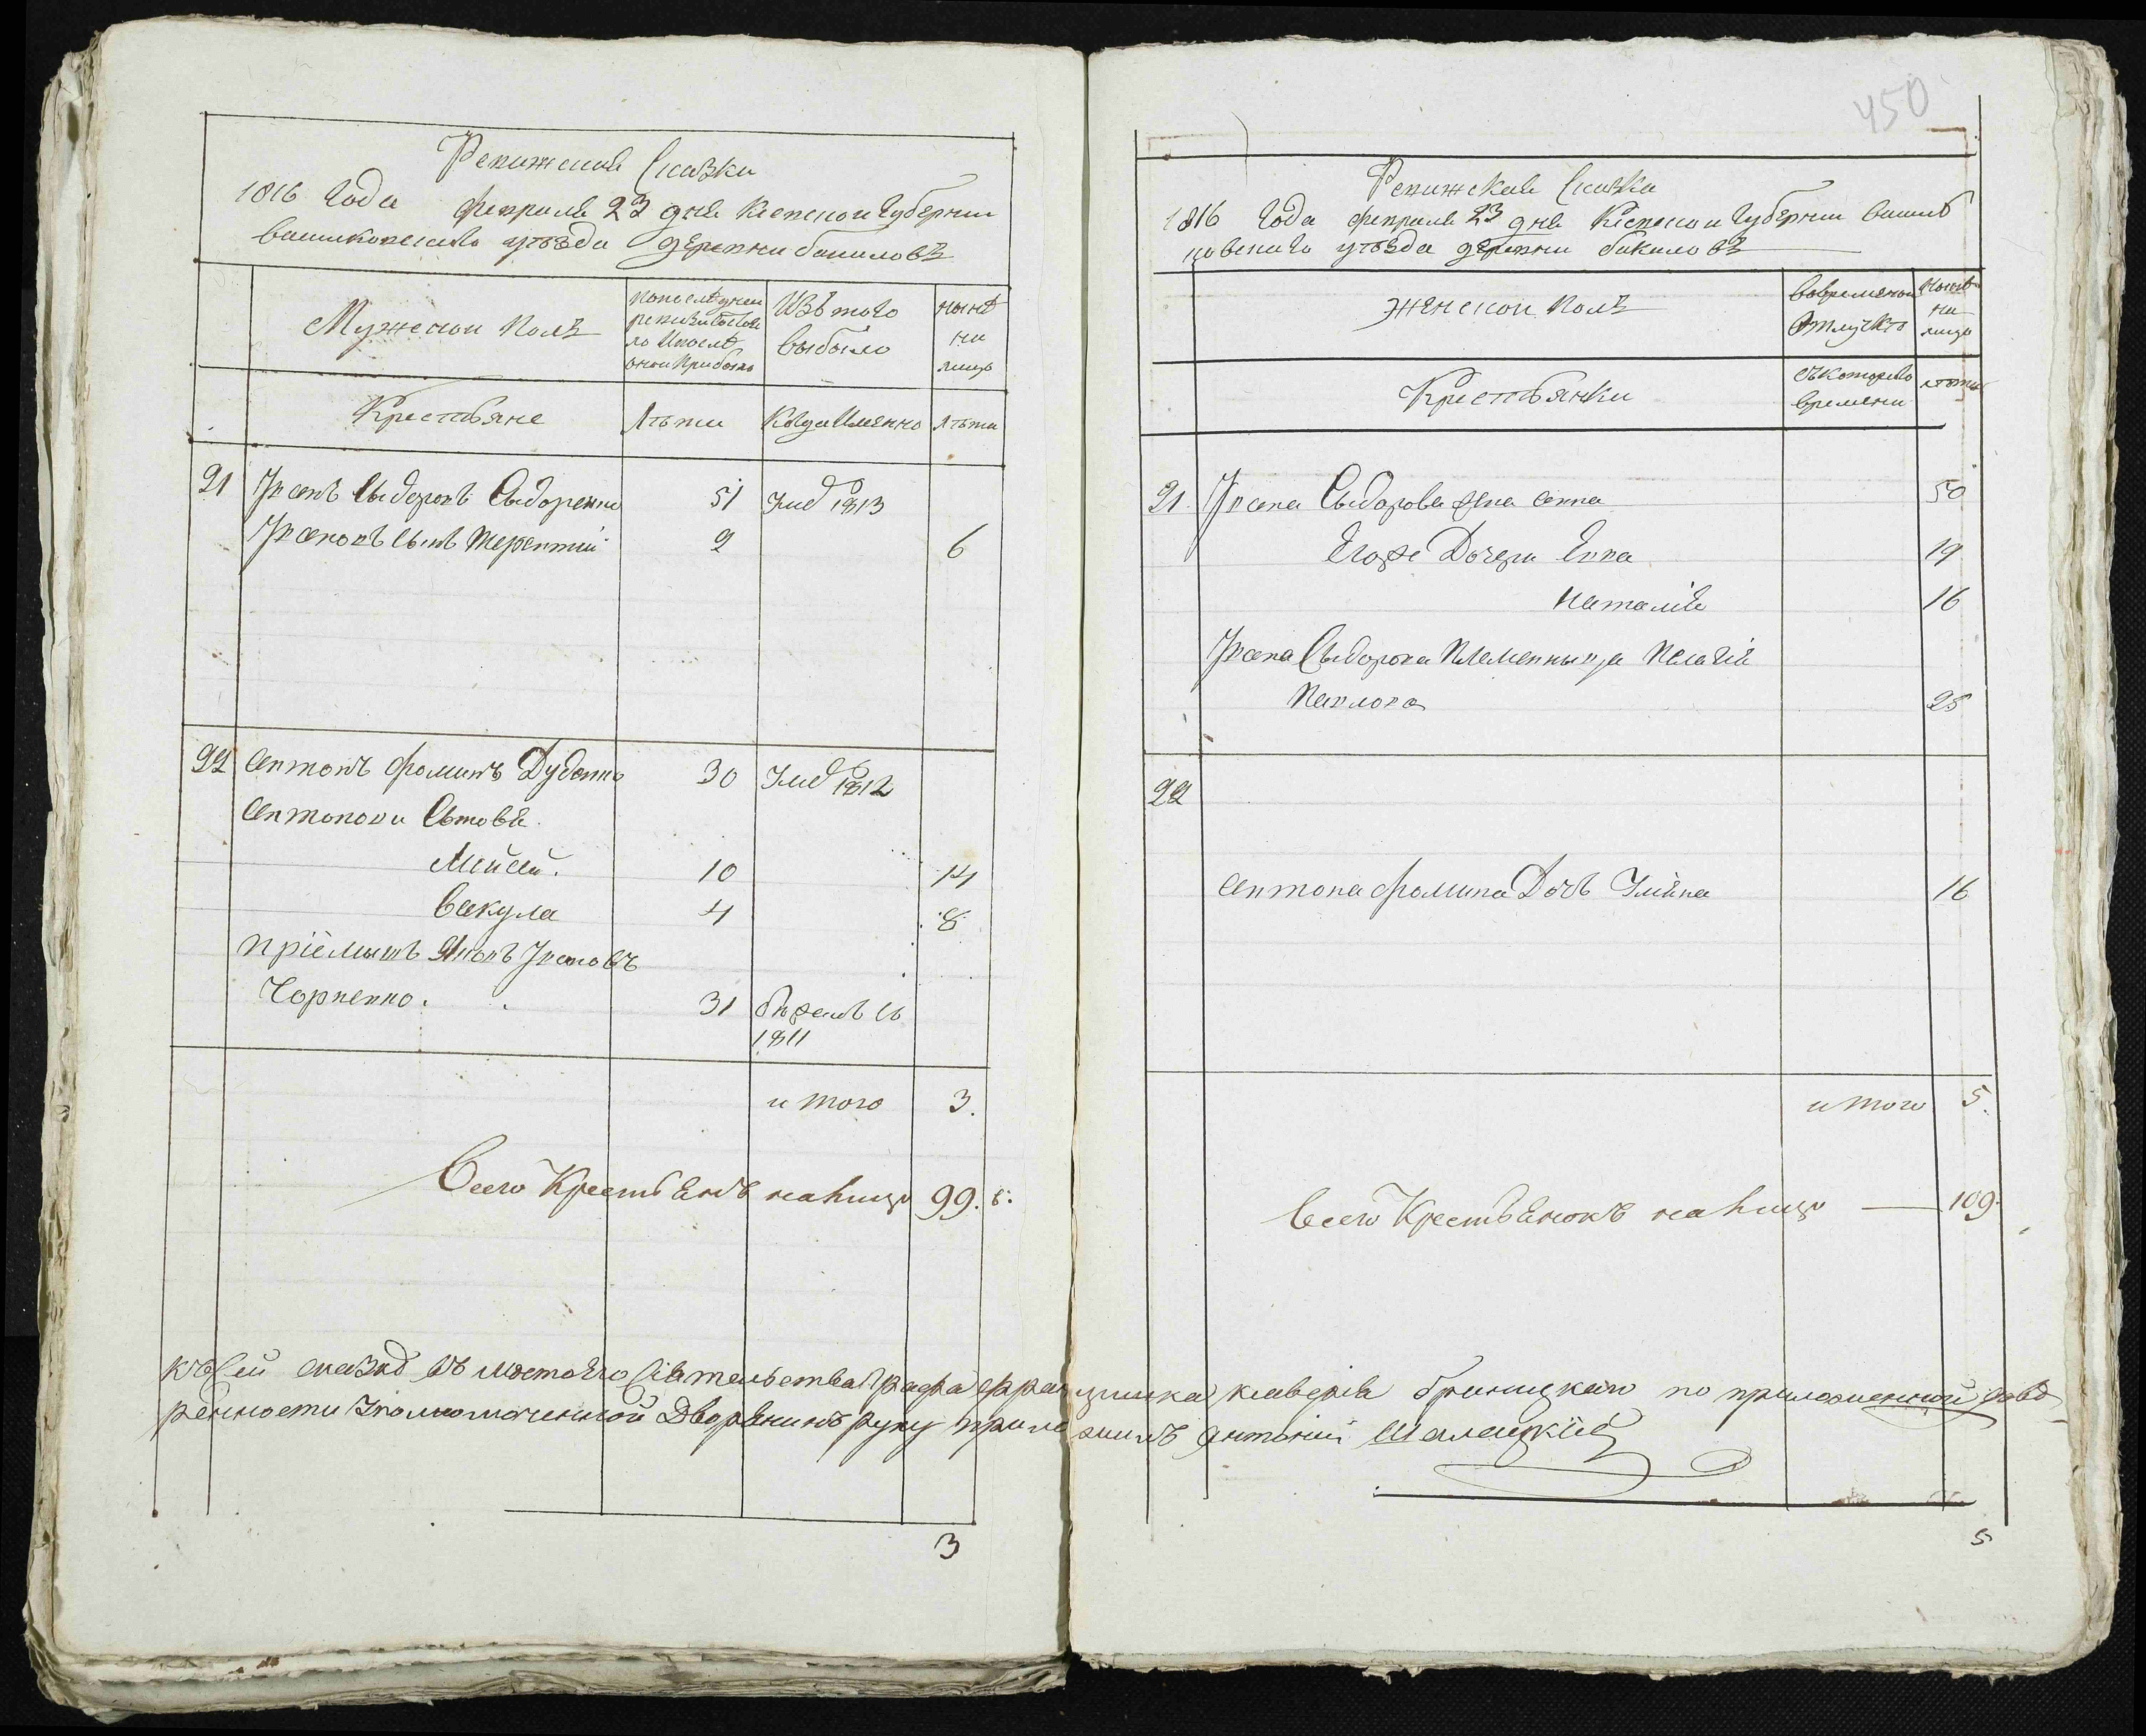 Ревижская Сказка
1816 Года февраля 23 дня Киевской Губернии
васильковского уѣзда деревни
Мужескои Полъ
Попоследнеи
ревизи состоя
ло Ипослѣ
оной Прибыло
Изъ того
выбыло
нынѣ
на
лицо
Крестьяне
Лѣты
Когда Имянно
Лѣты
21 Ивань Сыдоровъ Сыдоренко 51 Умѣ 1813
Ивановъ сынъ Терентий 2 6
22 Антонъ Фоминъ 30 Умѣ 1812
Антонови Сыновья
Мойсей. 10 14
Вакула 4 8
Пріемышъ Яковъ Ивановъ
Чорненко. 31 бѣжалъ въ
1811
итого 3.
Всего Крестьянъ налицо 99.
3
450
Ревижская Сказка
1816 Года февраля 23 дня Кіевскои Губернии василь
ковскаго уѣзда деревни
Женскои Полъ
вовременои
Отлучкѣ
Нынѣ
на
лицо
Крестьянки
съкоторого
времени
лѣты
21. Ивана Сыдорова жена Анна 50
Егоже Дочери Евва 19
Наталія 16
Ивана Сыдорова Племенныца Пелагія
Павлова 25
22
Антона Фомина Дочь Уляна 16
итого 5.
Всего Крестьянокъ налицо — 109.
Къ сей сказкѣ въ мѣсто Его Сіятельства Графа Францишка Ксаверія Браницкаго по приложенной довѣ-
ренности Уполномоченной Дворянинъ руку приложилъ Антоній
5